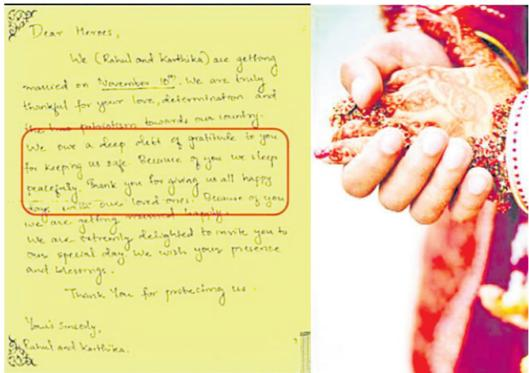 Dear Heroes,
We (Rahul and Karthika) are getting
married on November 10th. We are truly
thankful for your love, determination and
the true patriotism towards our country.
We owe a deep debt of gratitude to you
for keeping us safe. Because of you we sleep
peacefully. Thank you for giving us all happy
days with our loved ones. Because of you
we are getting married happily.
We are extremly delighted to invite you to
our special day. We wish your presence
and blessings.
Thank You for protecting us.
Yours Sincerly,
Rahul and Karthika.